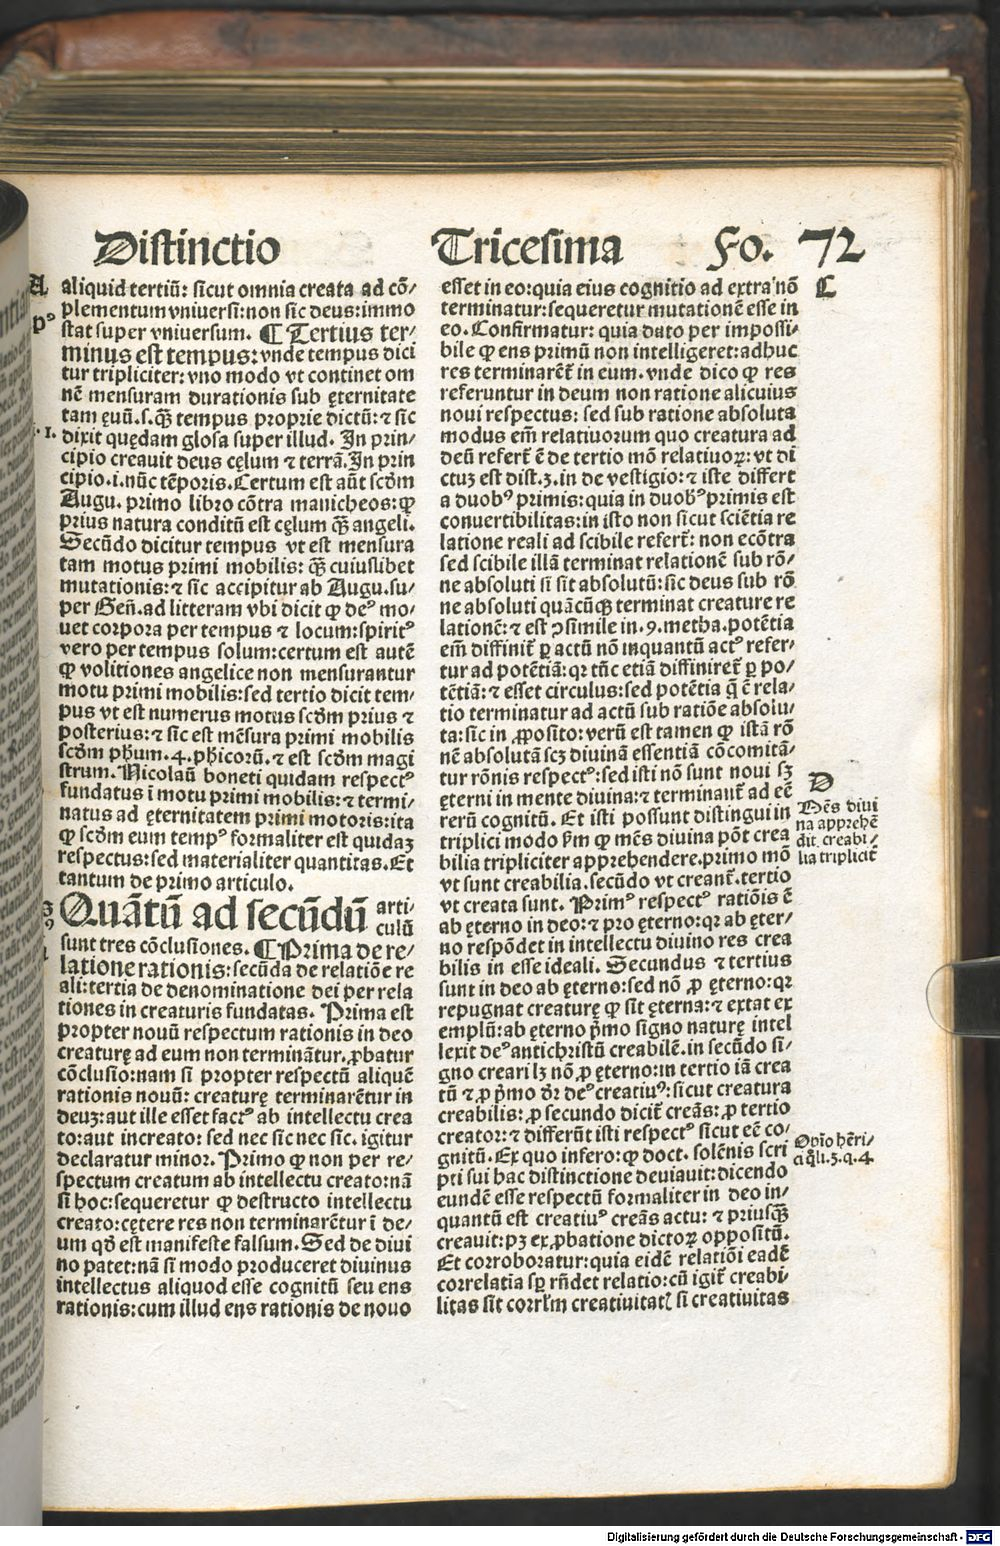 Distinctio Tricesima Fo. 72
A
aliquid tertiū: sicut omnia creata ad cō/
plementum vniuersi: non sic deus: immo
stat super vniuersum. ¶ Tertius ter/
minus est tempus: vnde tempus dici
tur tripliciter: vno modo vt continet om
nē mensuram durationis sub ęternitate
tam ęuū.s.q̄ȝ tempus proprie dictū: ⁊ sic
dixit quędam glosa super illud. In prin/
cipio creauit deus cęlum ⁊ terrā. In prin
cipio.i.nūc tēporis. Certum est aūt scd̄m
Augu. primo libro cōtra manicheos: ꝙ
prius natura conditū est cęlum q̄ȝ angeli.
Secūdo dicitur tempus vt est mensura
tam motus primi mobilis: q̄ȝ cuiuslibet
mutationis: ⁊ sic accipitur ab Augu. su/
per Gen̄. ad litteram vbi dicit ꝙ deꝰ mo/
uet corpora per tempus ⁊ locum: spiritꝰ
vero per tempus solum: certum est autē
ꝙ volitiones angelice non mensurantur
motu primi mobilis: sed tertio dicit tem/
pus vt est numerus motus scd̄m prius ⁊
posterius: ⁊ sic est mēsura primi mobilis
scd̄m ph̄um.4.ph̄icorū. ⁊ est scd̄m magi
strum. Nicolaū boneti quidam respectꝰ
fundatus ī motu primi mobilis: ⁊ termi/
natus ad ęternitatem primi motoris: ita
ꝙ scd̄m eum tempꝰ formaliter est quidaȝ
respectus: sed materialiter quantitas. Et
tantum de primo articulo.
Quātū ad secūdū arti/
culū
sunt tres cōclusiones. ¶ Prima de re/
latione rationis: secūda de relatiōe re
ali: tertia de denominatione dei per rela
tiones in creaturis fundatas. Prima est
propter nouū respectum rationis in deo
creaturę ad eum non terminātur. ꝓbatur
cōclusio: nam si propter respectū aliquē
rationis nouū: creaturę terminarētur in
deuȝ: aut ille esset factꝰ ab intellectu crea
to: aut increato: sed nec sic nec sic. igitur
declaratur minor. Primo ꝙ non per re/
spectum creatum ab intellectu creato: nā
si hoc: sequeretur ꝙ destructo intellectu
creato: cętere res non terminarētur ī de/
um qd̄ est manifeste falsum. Sed de diui
no patet: nā si modo produceret diuinus
intellectus aliquod esse cognitū seu ens
rationis: cum illud ens rationis de nouo
C
esset in eo: quia eius cognitio ad extra nō
terminatur: sequeretur mutationē esse in
eo. Confirmatur: quia dato per impossi/
bile ꝙ ens primū non intelligeret: adhuc
res terminarēt̄ in eum. vnde dico ꝙ res
referuntur in deum non ratione alicuius
noui respectus: sed sub ratione absoluta
modus em̄ relatiuorum quo creatura ad
deū refert̄ ē de tertio mō relatiuoꝝ: vt di
ctuȝ est dist.3.in de vestigio: ⁊ iste differt
a duobꝰ primis: quia in duobꝰ primis est
conuertibilitas: in isto non sicut sciētia re
latione reali ad scibile refert̄: non ecōtra
sed scibile illā terminat relationē sub rō/
ne absoluti si sit absolutū: sic deus sub rō
ne absoluti quācūqȝ terminat creature re
lationē: ⁊ est ꝯsimile in.9.metha. potētia
em̄ diffinit̄ ꝑ actū nō inquantū actꝰ refer/
tur ad potētiā: qr tūc etiā diffiniret̄ ꝑ po/
tētiā: ⁊ esset circulus: sed potētia q̄ ē rela/
tio terminatur ad actū sub ratiōe absolu/
ta: sic in ꝓposito: verū est tamen ꝙ istā rō
nē absolutā scȝ diuinā essentiā cōcomitā/
tur rōnis respectꝰ: sed isti nō sunt noui sȝ
ęterni in mente diuina: ⁊ terminant̄ ad eē
rerū cognitū. Et isti possunt distingui in
triplici modo ꝑm ꝙ mēs diuina pōt crea
bilia tripliciter apprehendere. primo mō
vt sunt creabilia. secūdo vt creant̄. tertio
vt creata sunt. Primꝰ respectꝰ ratiōis ē
ab ęterno in deo: ⁊ pro ęterno: qr ab ęter/
no respōdet in intellectu diuino res crea
bilis in esse ideali. Secundus ⁊ tertius
sunt in deo ab ęterno: sed nō ꝓ ęterno: qr
repugnat creaturę ꝙ sit ęterna: ⁊ extat ex
emplū: ab ęterno p̄mo signo naturę intel
lexit deꝰ antichristū creabilē. in secūdo si/
gno creari lȝ nō ꝓ ęterno: in tertio iā crea
tū ⁊ ꝓ p̄mo dr̄ deꝰ creatiuꝰ: sicut creatura
creabilis: ꝓ secundo dicit̄ creās: ꝓ tertio
creator: ⁊ differūt isti respectꝰ sicut eē co/
gnitū. Ex quo infero: ꝙ doct. solēnis scri
pti sui hac distinctione deuiauit: dicendo
eundē esse respectū formaliter in deo in/
quantū est creatiuꝰ creās actu: ⁊ priusq̄ȝ
creauit: pȝ ex ꝓbatione dictoꝝ oppositū.
Et corroboratur: quia eidē relatiōi eadē
correlatia sꝑ rn̄det relatio: cū igit̄ creabi/
litas sit corrl̄m creatiuitatꝭ si creatiuitas
D
Mēs diui
na apprehē
dit creabi/
lia triplicit̄
Opīo hēri/
ci q̄li.5.q.4.